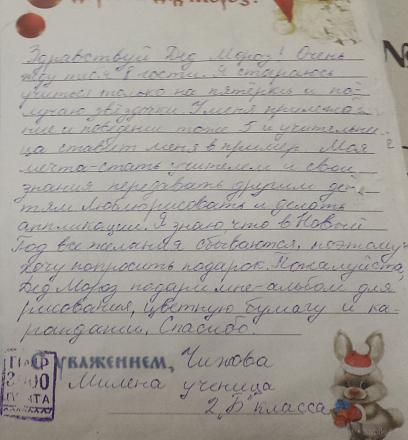 Дед Мороз!
Здравствуй Дед Мороз! Очень
жду тебя в гости. Я стараюсь
учиться только на пятёрки и по-
лучаю звёздочки. У меня прилежа-
ние и поведение тоже 5 и учительни-
ца ставит меня в пример. Моя
мечта-стать учителем и свои
знания передавать другим де-
тям. Люблю рисовать и делать
аппликации. Я знаю, что в Новый
Год все желания сбываются, поэтому
хочу попросить подарок. Пожалуйста,
Дед Мороз подари мне-альбом для
рисования, цветную бумагу и ка-
рандаши. Спасибо.
С уважением, Чижова
Милена ученица
2 „Б" класса